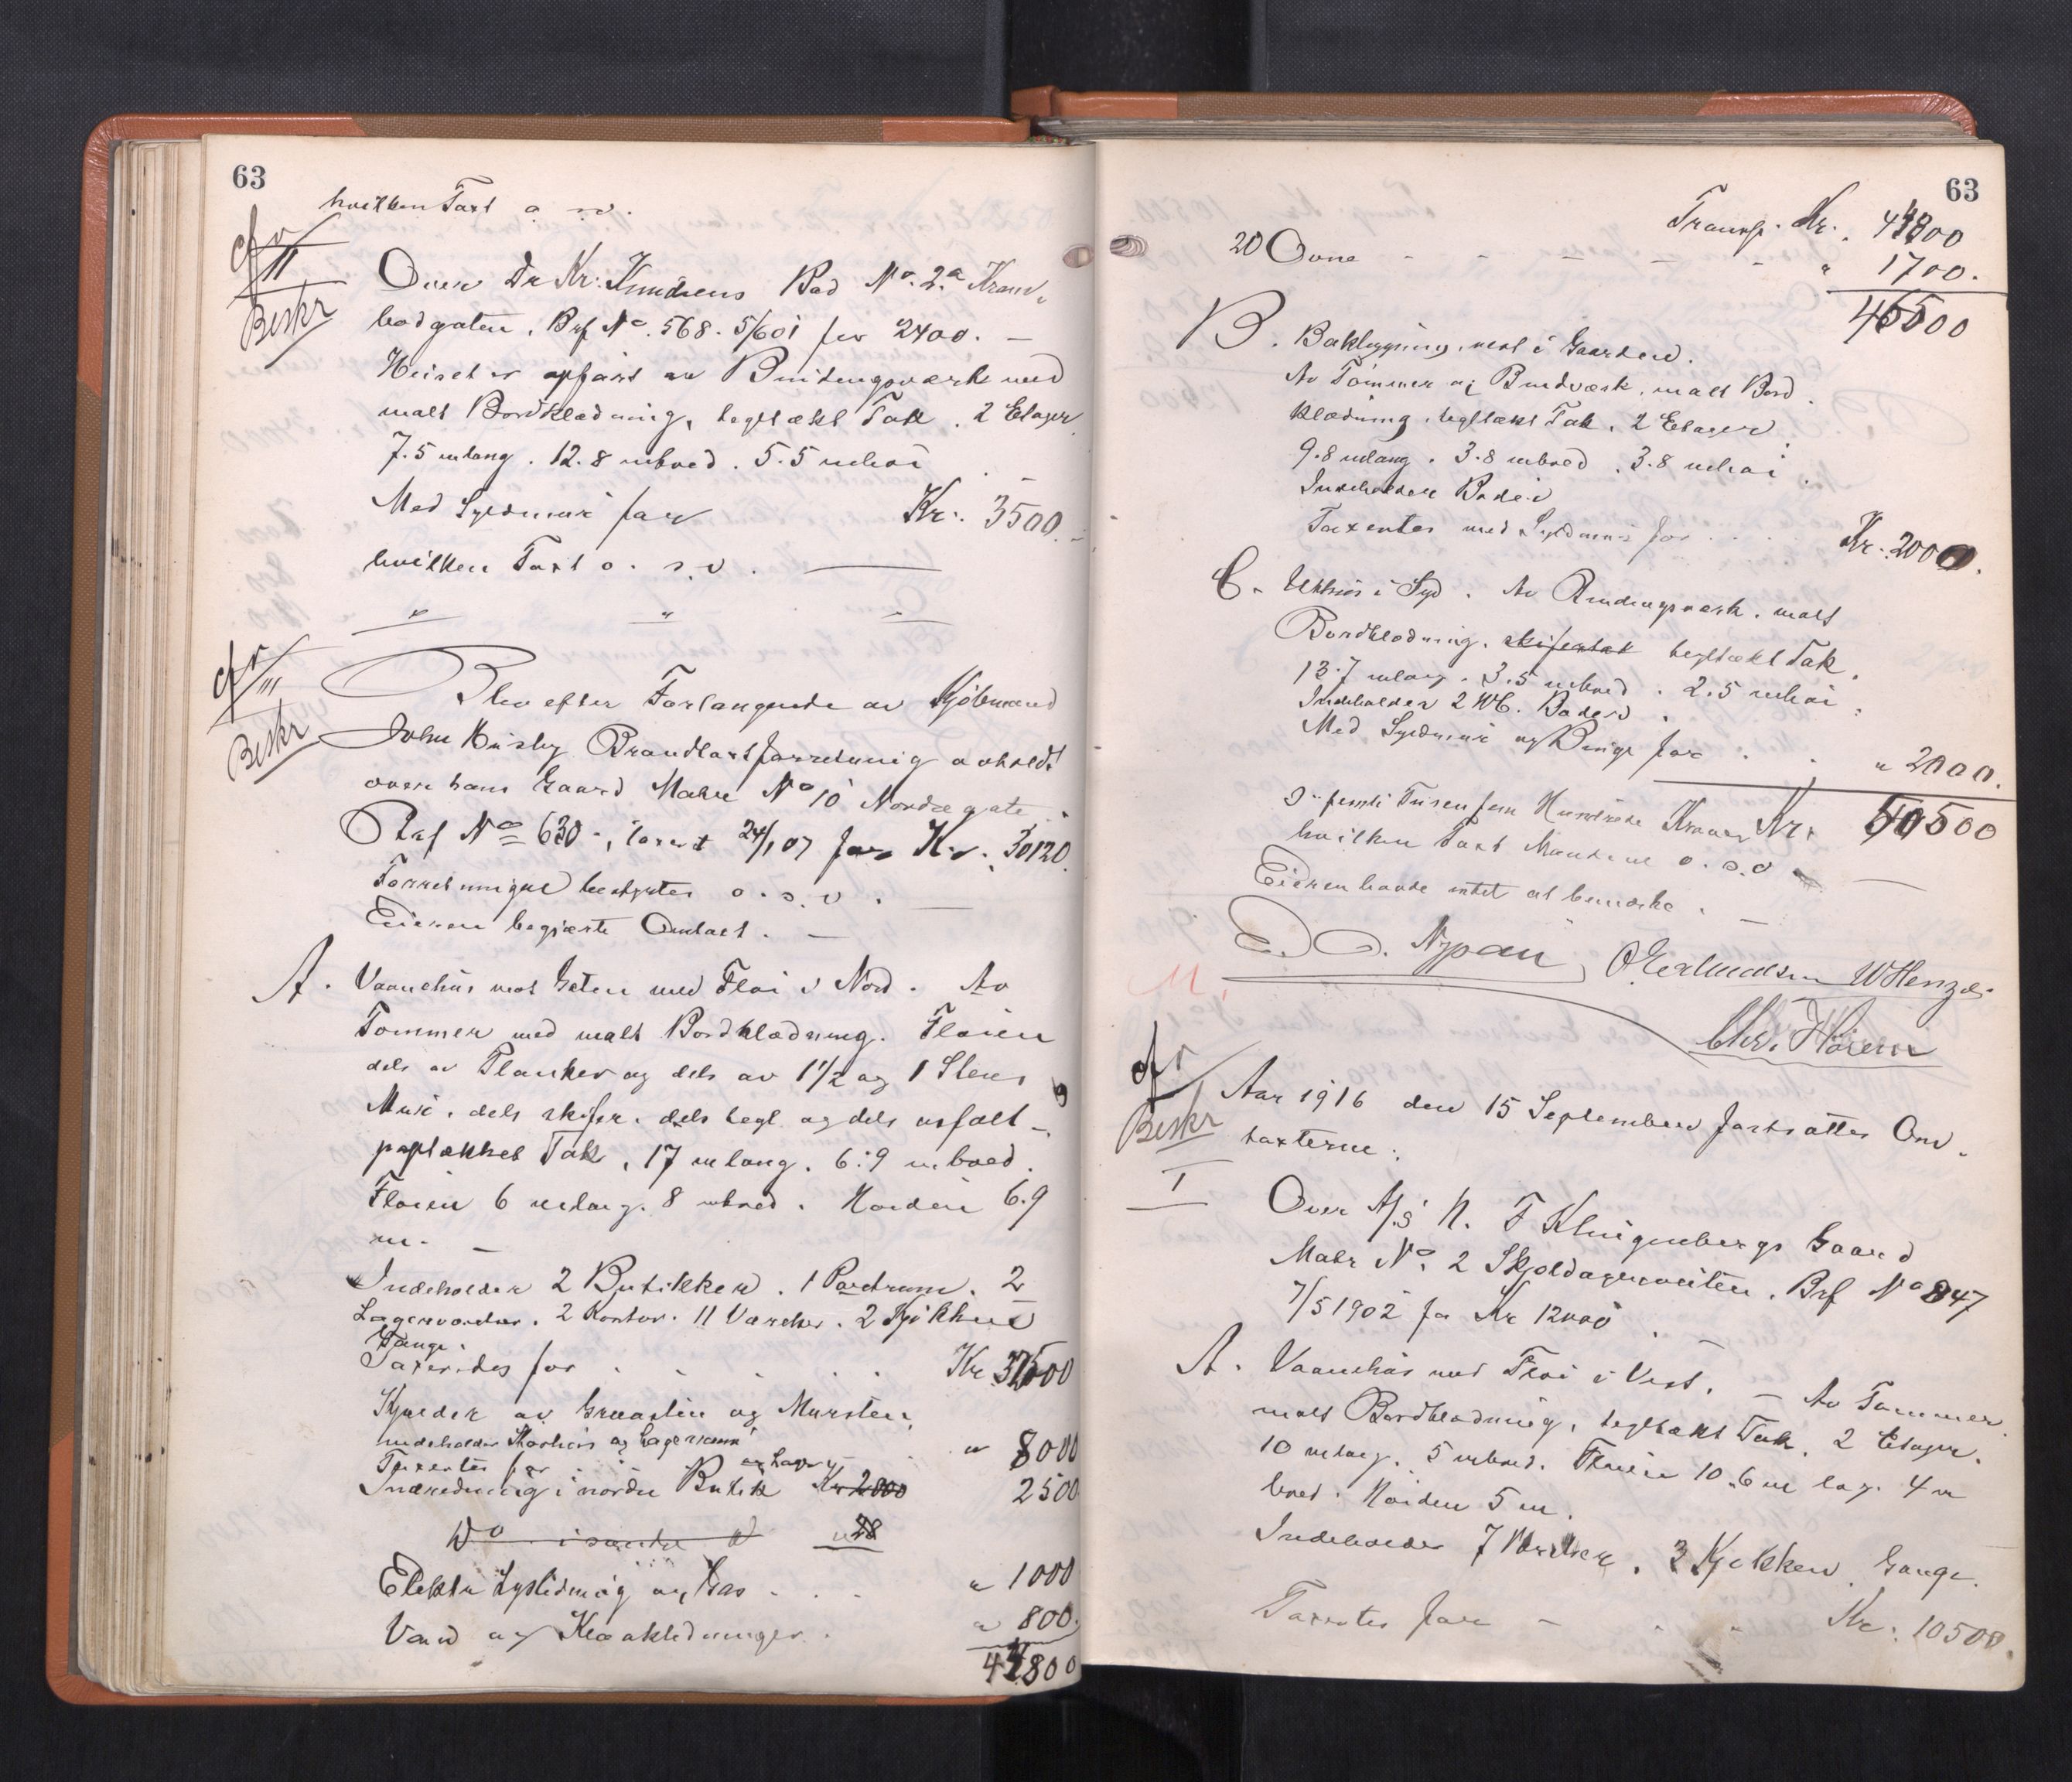 63
hvilken Taxt o. s.v.
cfr
II
Beskr
Over Dr Kr: Knudsens Bod No. 2a Kram-
bodgaten. Brf No. 568. 5/6 01 for 2400. —
Huset er opført av Bindingsværk med
malt Bordklædning, tegltækt Tak. 2 Etager
7.5 m lang. 12.8 m bred. 5.5 m høi
Med Syldmur for Kr. 3500.
hvilken Taxt o. s.v. —
" " "
cfr
III
Beskr
Blev efter Forlangende av Kjøbmand
John Busby Brandtaxtforretning avholdt
over hans Gaard Matr No 10 Nordregate.
Brf No 630, taxert 24/1 07 for Kr. 30120.
Forretningen bestyrtes o. s. v. —
Eieren begjærte Omtaxt. —
A. Vaanehus mot Gaten med Fløi i Nord. Av
Tømmer med malt Bordklædning. Fløien
dels av Planker og dels av 1 1/2 og 1 Stens
Mur. dels skifer. dels tegl og dels asfalt-
paptækket Tak, 17 m lang. 6.9 m bred.
Fløien 6 m lang. 8 m bred. Høiden 6.9
m. —
Indeholder 2 Butikker. 1 Pakrum. 2
Lagerværelser. 2 Kontor. 11 Værelser. 2 Kjøkken
Gange.
Taxeredes for . . . . Kr 32500
Kjælder av Graasten og Mursten,
indeholder og Lagerrum
Taxertes for . . " 8000
og Lager
Indredning i nordre Butik Kr 2000 2500
Do i søndre Do
Elektr Lysledning og Gas . . . " 1000
Vand og Kloakledninger. " 800.
44800
63
Transp. Kr. 44800
20 Ovne - - - - - " 1700.
46500
B. Bakbygning vest i Gaarden.
Av Tømmer og Bindværk, malt Bord-
klædning, tegltækt Tak, 2 Etager
9.8 m lang. 3.8 m bred. 3.8 m høi.
Indeholder Boder
Taxertes med Syldmur for . . . Kr. 2000.
C. Uthus i Syd. Av Bindingsværk. malt
Bordklædning. skifertak tegltækt Tak.
13.7 m lang. 3.5 m bred. 2.5 m høi.
Indeholder 2 WC. Boder.
Med Syldmur og Binge for . . " 2000.
femti Tusen fem Hundrede Kroner Kr. 50500
hvilken Taxt Mændene o. s. v —
Eieren havde intet at bemærke. —
Nypan, O. W Henzel
Chr. Hörem
M.
cfr
Beskr
Aar 1916 den 15 September fortsattes Om-
taxterne.
I
Over A/S N. F Klingenbergs Gaard
Matr No. 2 Skjoldagerveiten. Brf No 847
7/5 1902 for Kr 12000.
A. Vaanehus med Fløi i Vest. — Av Tømmer
malt Bordklædning, tegltækt Tak, 2 Etager.
10 m lang. 5 m bred. Fløien 10.6 m lang. 4 m
bred. Høiden 5 m.
Indeholder 7 Værelser. 3 Kjøkken. Gange.
Taxertes for — . . Kr. 10500.